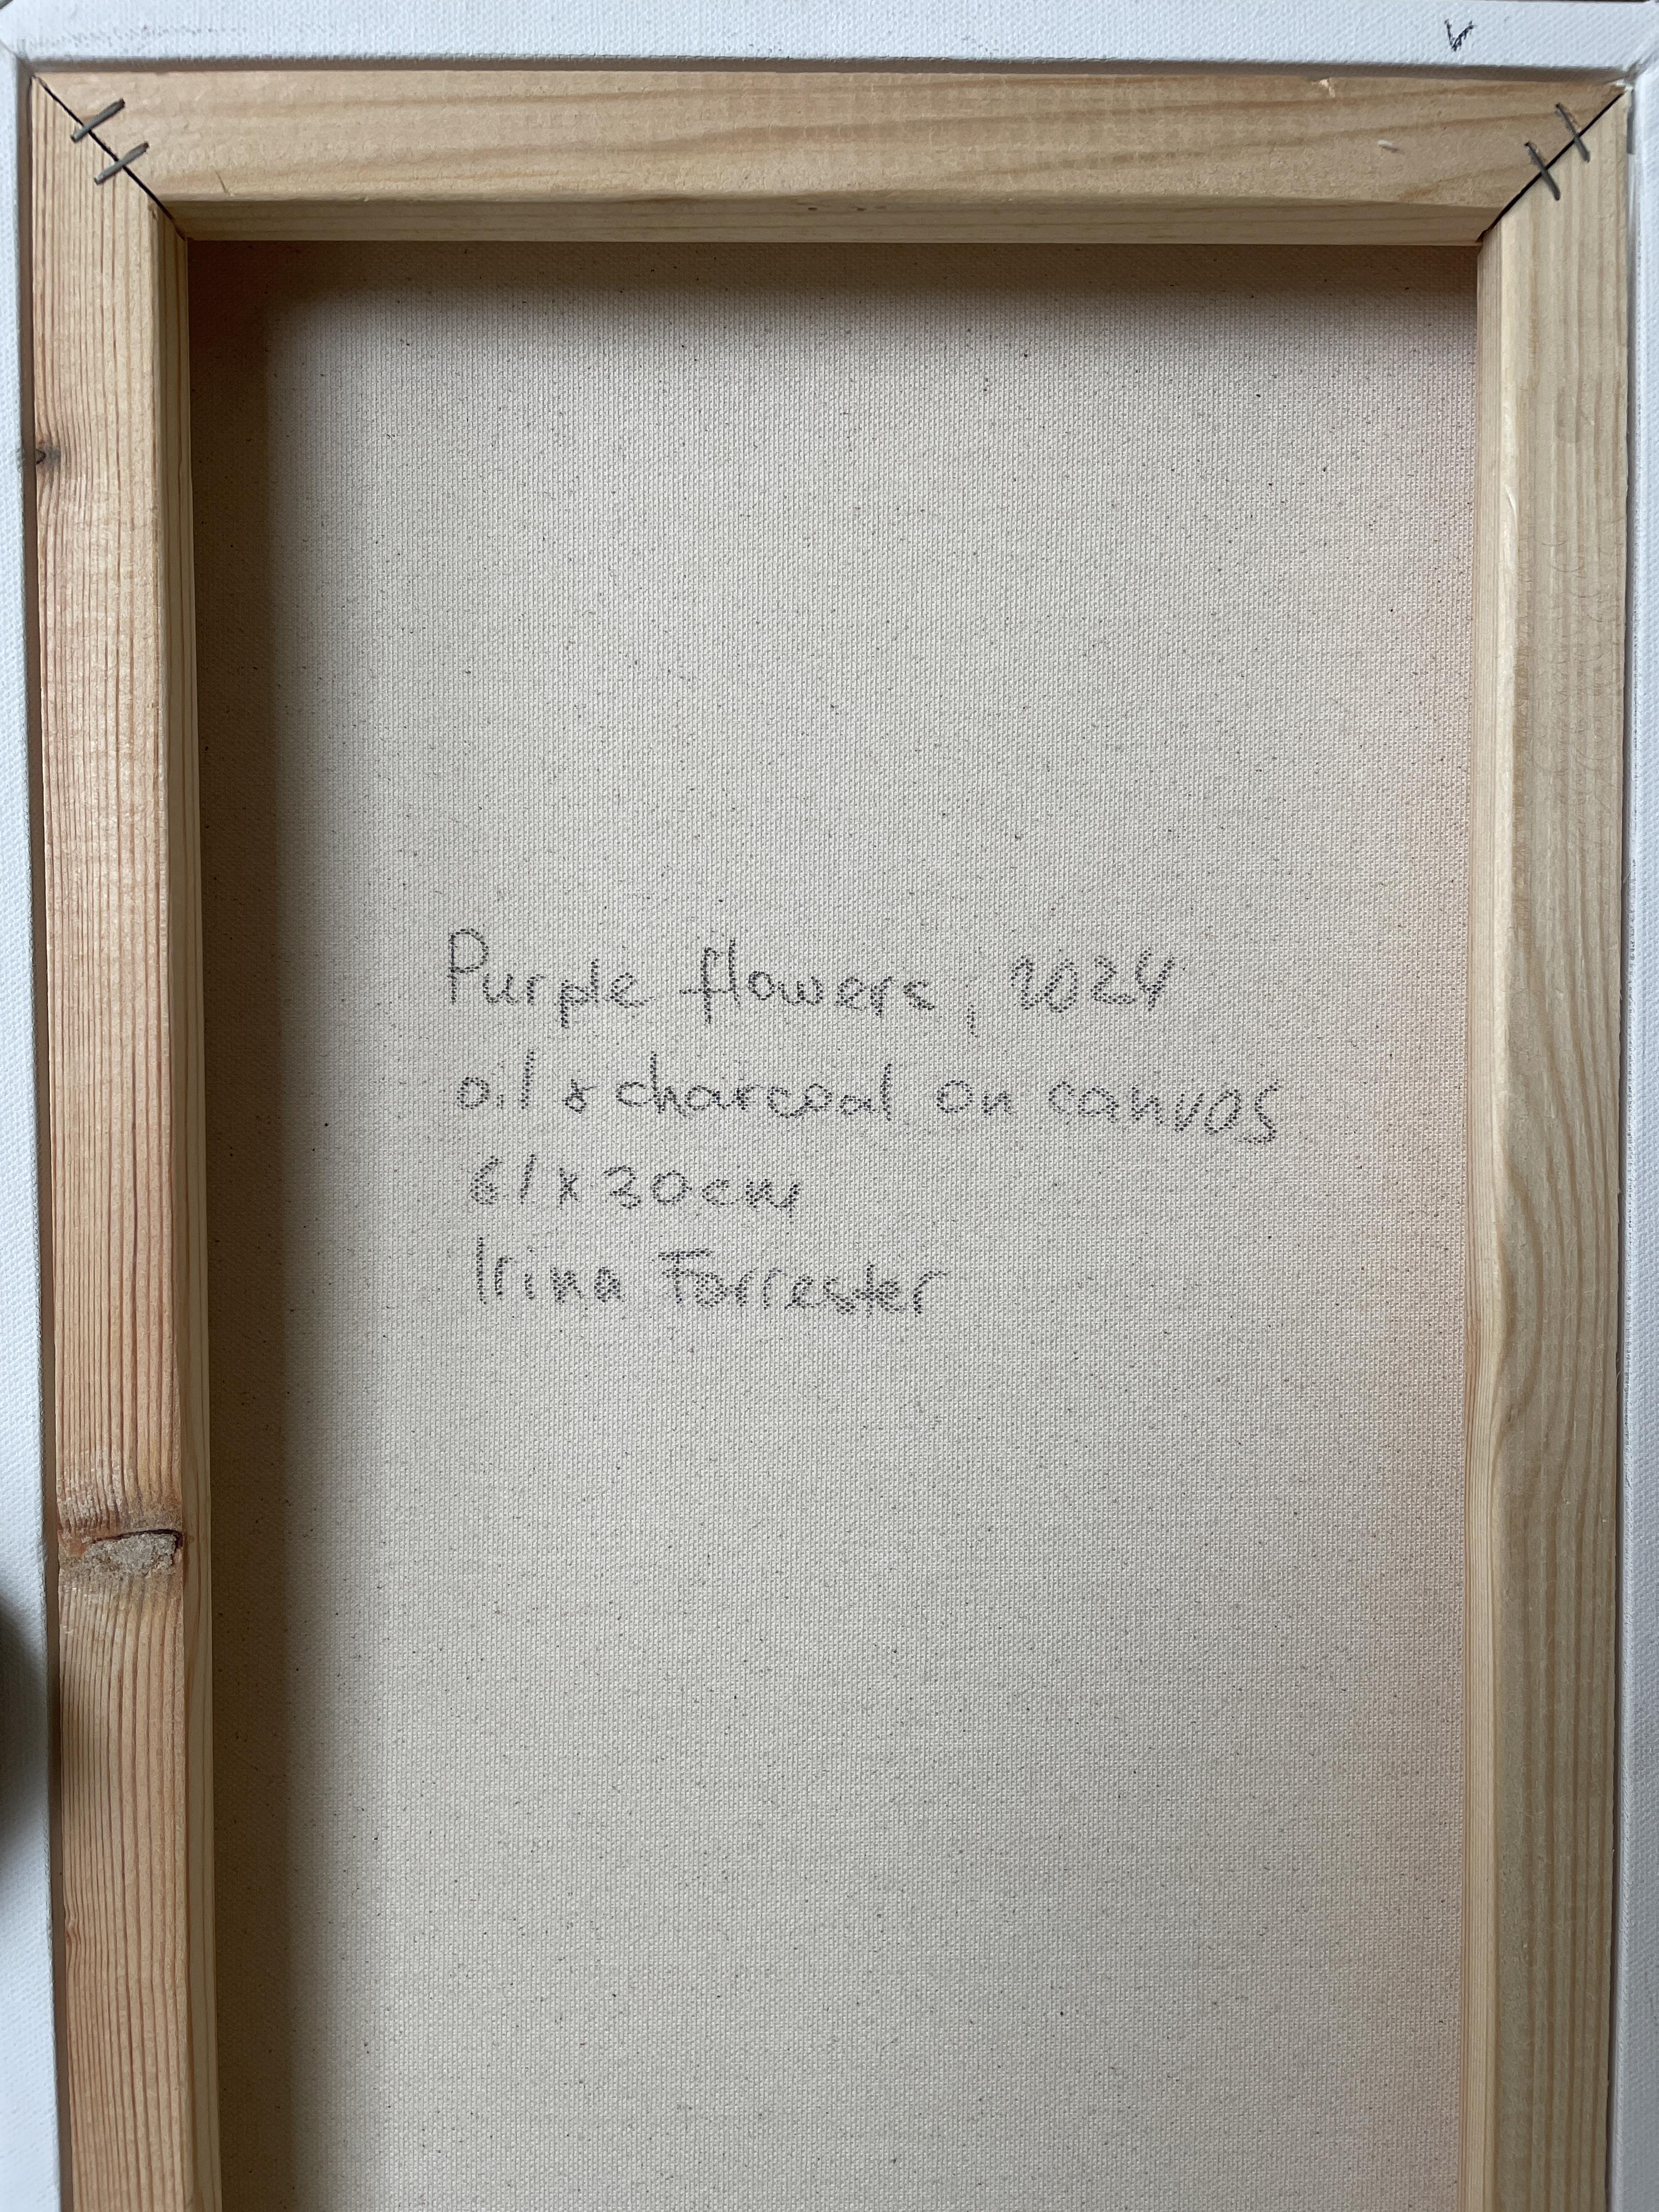 Purple flowers, 2024
oil & charcoal on canvas
61x30cm
Irina Forrester